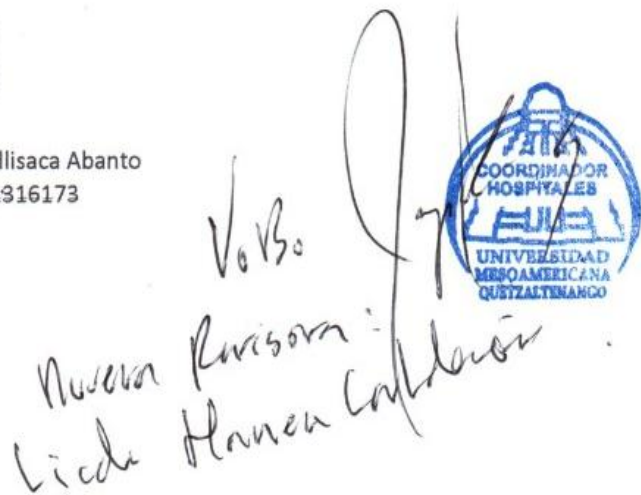 llisaca Abanto
316173
VoBo
COORDINADOR
HOSPITALES
UNIVERSIDAD
MESOAMERICANA
QUETZALTENANGO
Nueva Revisora:
Licda